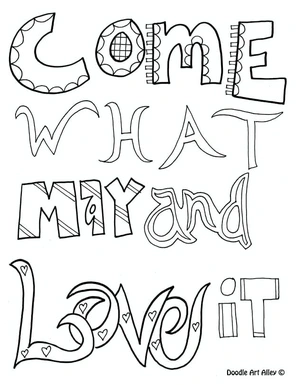 COME
WHAT
MAY and
Love iT
Doodle Art Alley ©